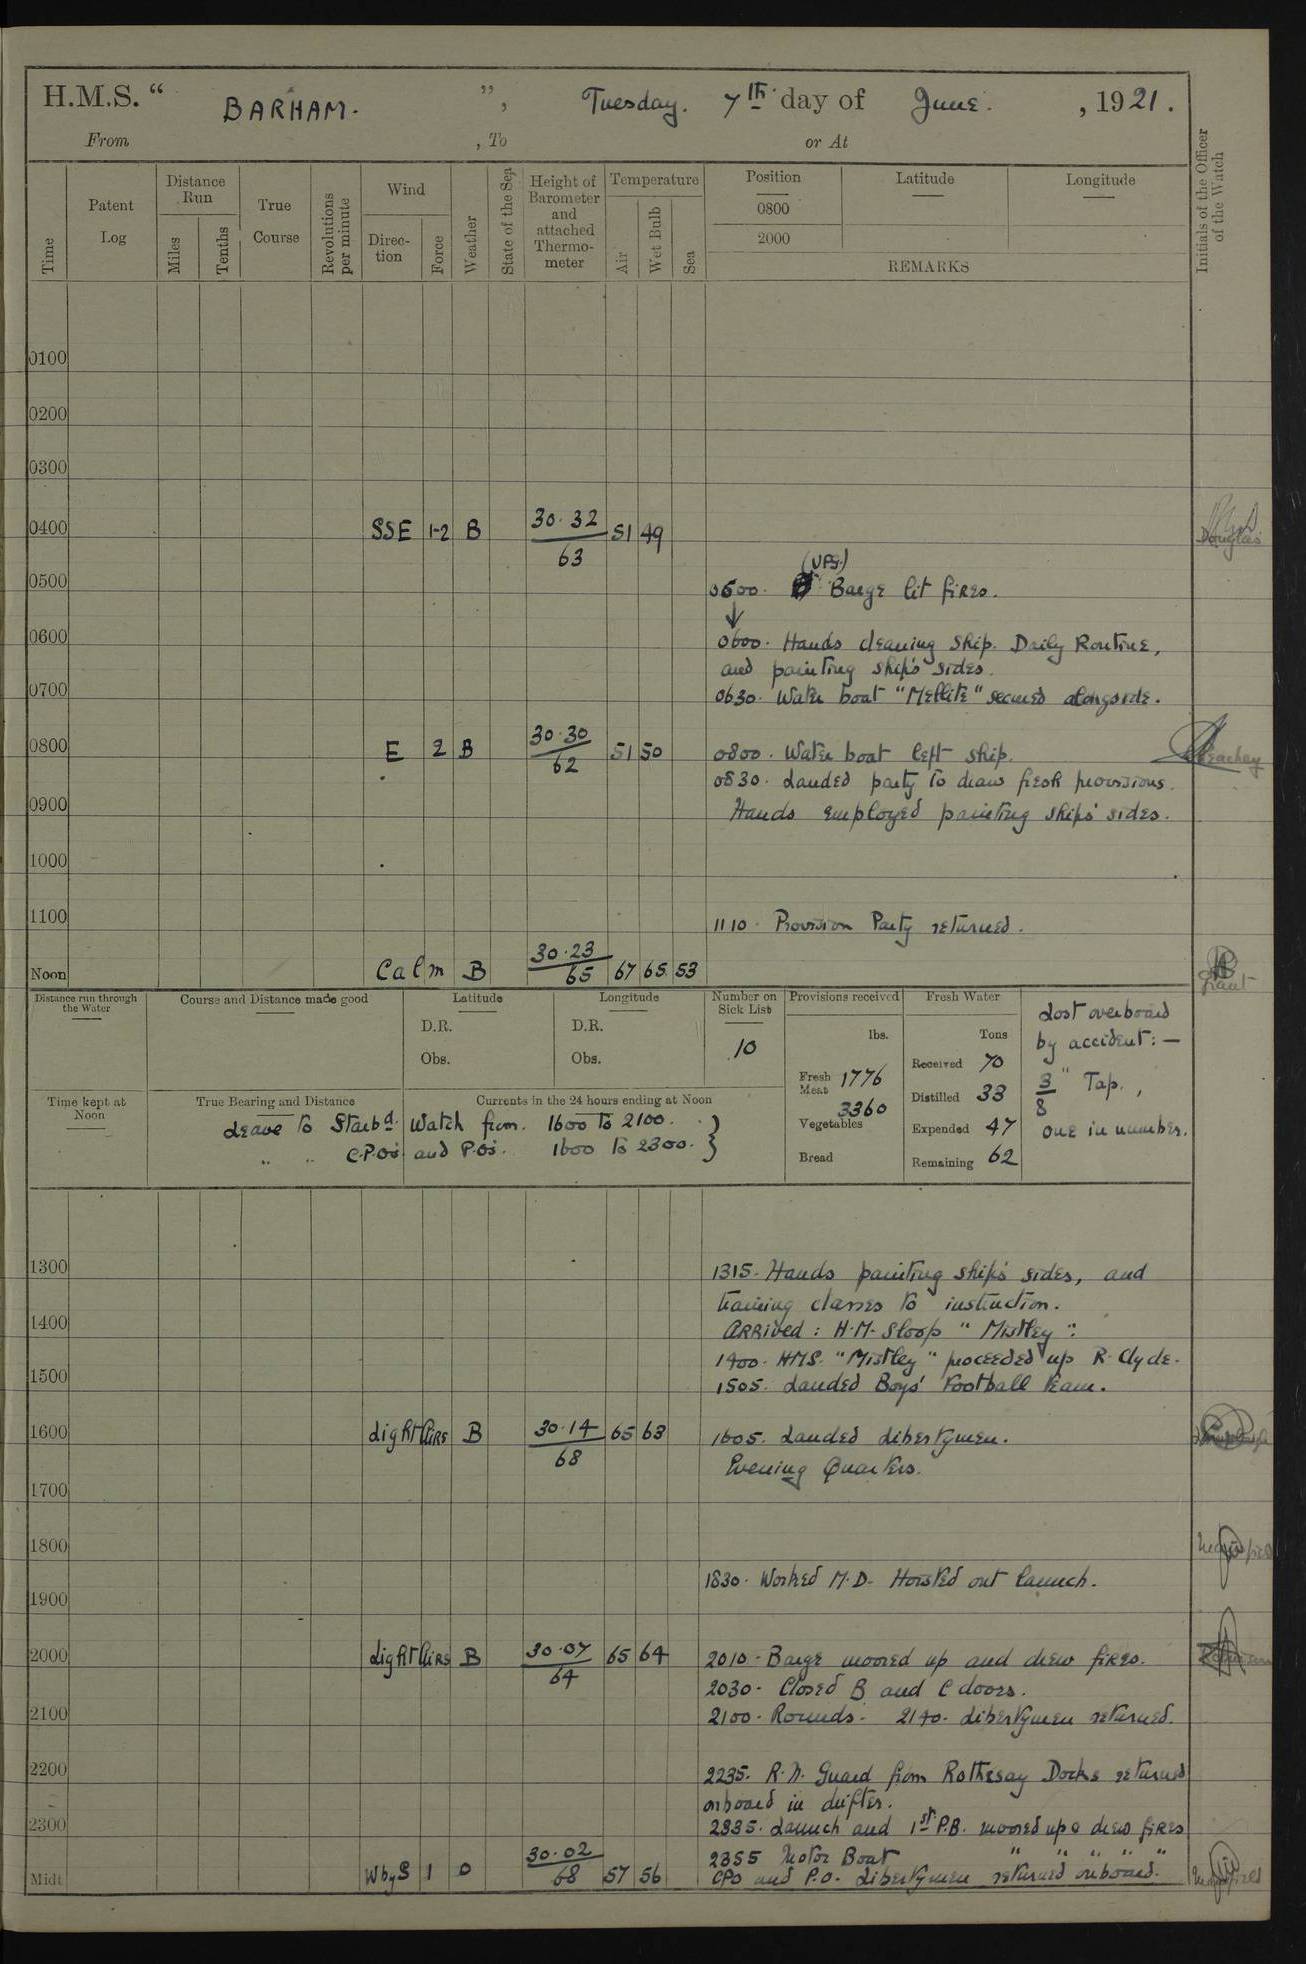 H.M.S. “ BARHAM. ”, Tuesday. 7th day of June. , 1921.
From , To or At
Time
Patent Log
Distance Run
Miles
Tenths
True Course
Revolutions per minute
Wind
Direction
Force
Weather
State of the Sea
Height of Barometer and attached Thermometer
Temperature
Air
Wet Bulb
Sea
Position
0800
2000
Latitude
Longitude
REMARKS
Initials of the Officer of the Watch
0100
0200
0300
0400 SSE 1-2 B 30.32 63 51 49 Douglas
0500
(UPS.)
0500. Barge lit fires.
0600
0600. Hands cleaning Ship. Daily Routine,
and painting ship's sides.
0700
0630. Water boat "Mellite" secured alongside.
0800 E 2 B 30.30 62 51 50 0800. Water boat left ship.
0830. Landed party to draw fresh provisions.
0900
Hands employed painting ships' sides.
1000
1100
1110. Provision Party returned.
Noon Calm B 30.23 65 67 65 53 Grant
Distance run through the Water
Course and Distance made good
Latitude
D.R.
Obs.
Longitude
D.R.
Obs.
Number on Sick List
10
Provisions received
lbs.
Fresh Meat 1776
3360
Vegetables
Bread
Fresh Water
Tons
Received 70
Distilled 33
Expended 47
Remaining 62
Lost overboard
by accident:—
3/8" Tap.,
one in number.
Time kept at Noon
True Bearing and Distance
Currents in the 24 hours ending at Noon
Leave to Starbd. Watch from. 1600 to 2100.
" " C.P.O's and P.O's. 1600 to 2300.
1300
1315. Hands painting ship's sides, and
training classes to instruction.
1400
Arrived: H.M. Sloop "Mistley".
1400. HMS. "Mistley" proceeded up R. Clyde.
1500
1505. Landed Boys' Football team.
1600 Light Airs B 30.14 68 65 63 1605. Landed Libertymen.
Evening Quarters.
1700
1800
1830. Worked M.D. Hoisted out launch.
1900
2000 Light Airs B 30.07 64 65 64 2010. Barge moored up and drew fires.
2030. Closed B and C doors.
2100
2100. Rounds. 2140. Libertymen returned.
2200
2235. R.N. Guard from Rothesay Docks returned
onboard in drifter.
2300
2335. Launch and 1st P.B. moored up & drew fires
2355 Motor Boat " " " " "
Midt. WbyS 1 O 30.02 68 57 56 CPO and P.O. Libertymen returned onboard.